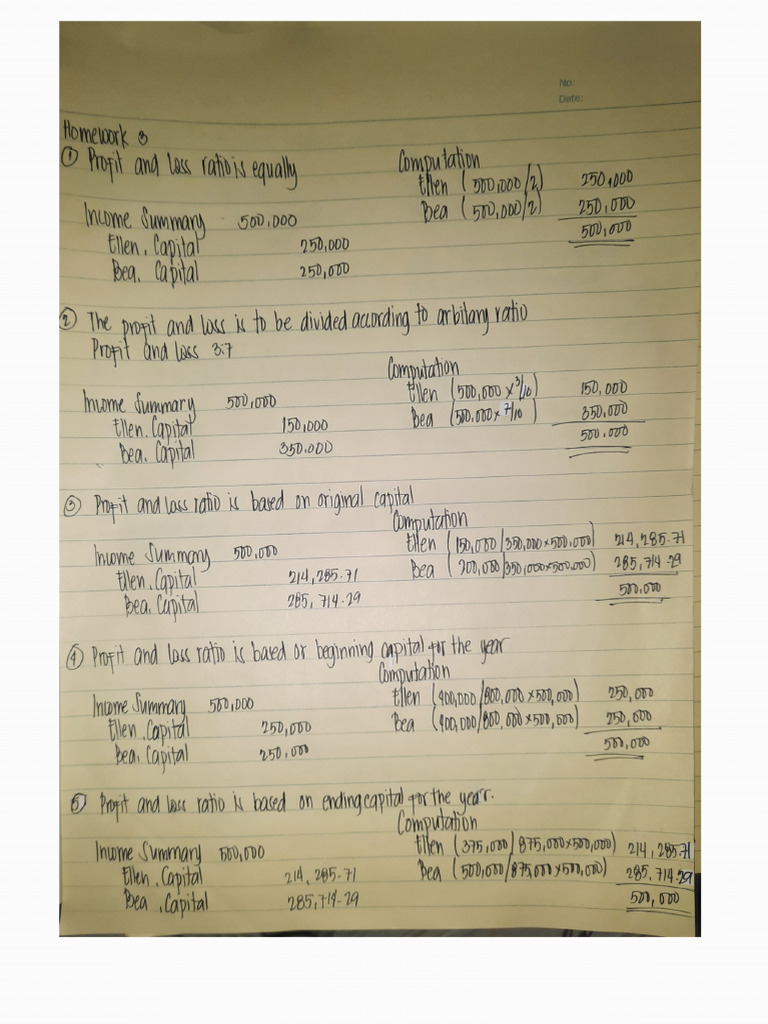 No:
Date:
Homework 3
① Profit and Loss ratio is equally
Computation
Ellen (500,000/2) 250,000
Bea (500,000/2) 250,000
500,000
Income Summary 500,000
Ellen, Capital 250,000
Bea, Capital 250,000
② The profit and loss is to be divided according to arbitary ratio
Profit and loss 3:7
Computation
Ellen (500,000 x 3/10) 150,000
Bea (500,000 x 7/10) 350,000
500,000
Income Summary 500,000
Ellen, Capital 150,000
Bea, Capital 350,000
③ Profit and loss ratio is based on original capital
Computation
Ellen (150,000/350,000x500,000) 214,285.71
Bea (200,000/350,000x500,000) 285,714.29
500,000
Income Summary 500,000
Ellen, Capital 214,285.71
Bea, Capital 285,714.29
④ Profit and loss ratio is based or beginning capital for the year
Computation
Ellen (400,000/800,000 x 500,000) 250,000
Bea (400,000/800,000 x 500,000) 250,000
500,000
Income Summary 500,000
Ellen, Capital 250,000
Bea, Capital 250,000
⑤ Profit and loss ratio is based on ending capital for the year.
Computation
Ellen (375,000/875,000x500,000) 214,285.71
Bea (500,000/875,000x500,000) 285,714.29
500,000
Income Summary 500,000
Ellen, Capital 214,285.71
Bea, Capital 285,714.29